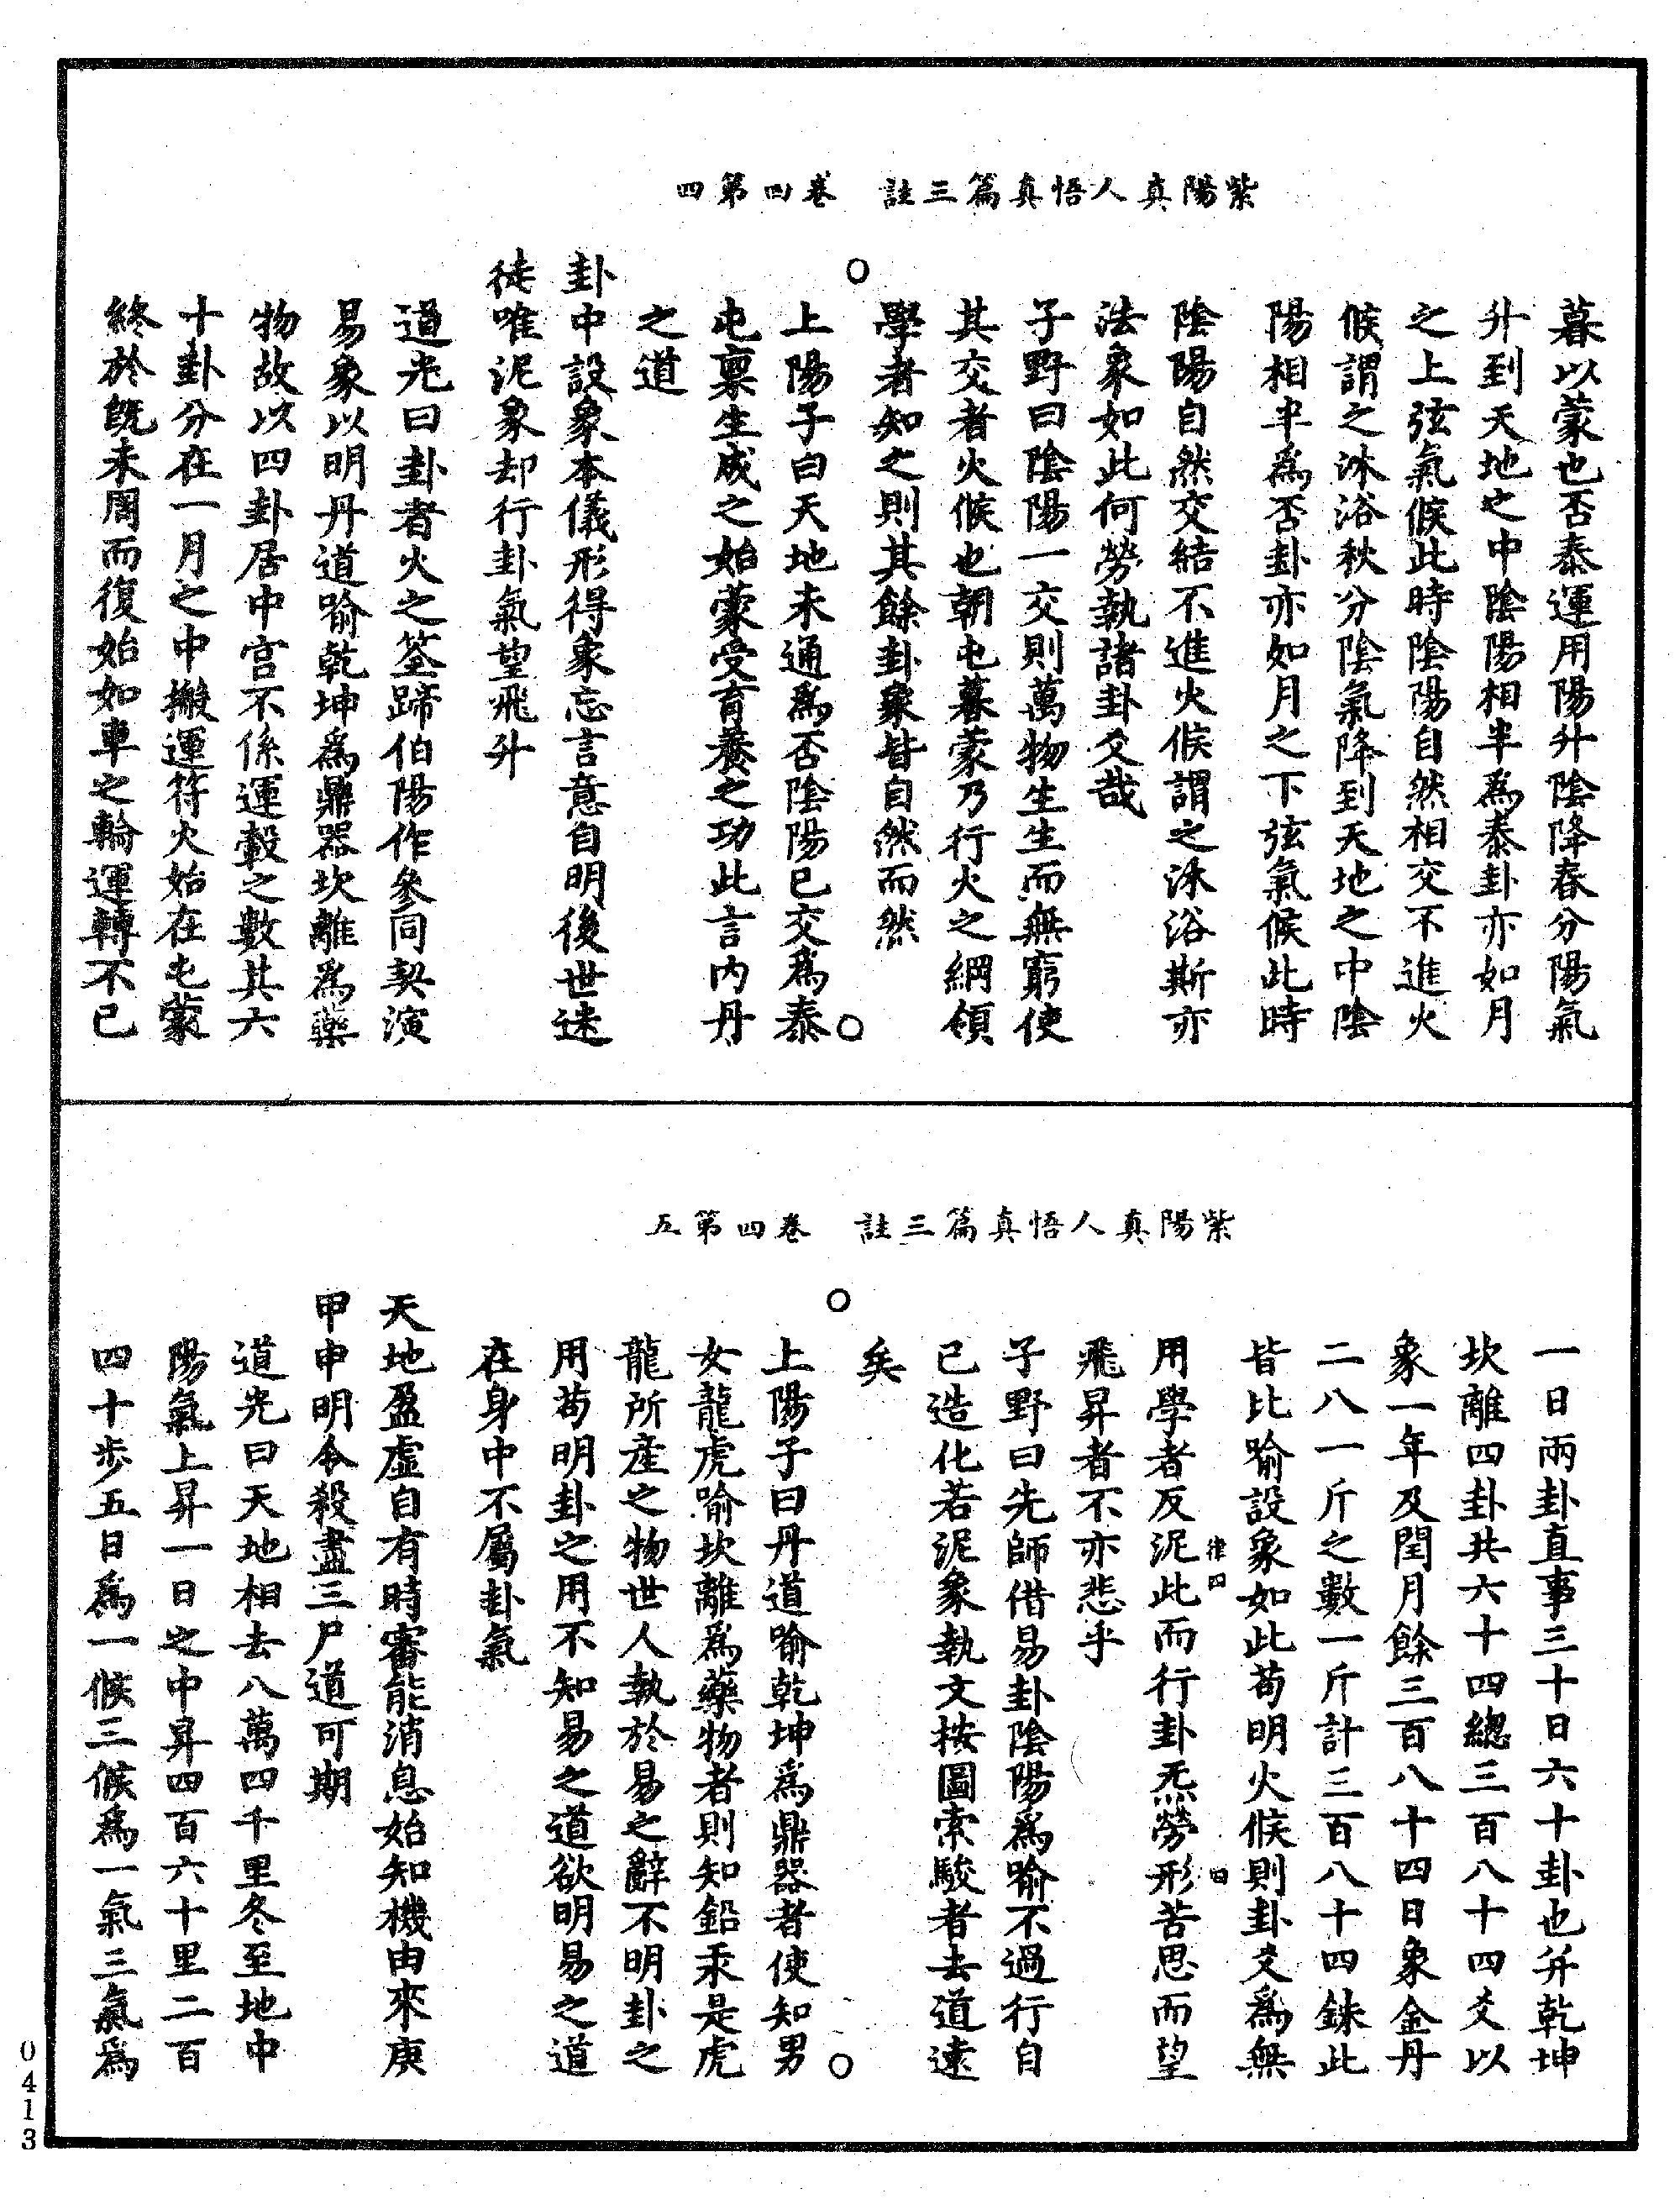 紫陽真人悟真篇三註　卷四第四
暮以蒙也否泰運用陽升陰降春分陽氣
升到天地之中陰陽相半為泰卦亦如月
之上弦氣候此時陰陽自然相交不進火
候謂之沐浴秋分陰氣降到天地之中陰
陽相半為否卦亦如月之下弦氣候此時
陰陽自然交結不進火候謂之沐浴斯亦
法象如此何勞執諸卦爻哉
子野曰陰陽一交則萬物生生而無窮使
其交者火候也朝屯暮蒙乃行火之綱領
學者知之則其餘卦象皆自然而然
上陽子曰天地未通為否陰陽已交為泰
屯稟生成之始蒙受育養之功此言內丹
之道
卦中設象本儀形得象忘言意自明後世迷
徒唯泥象却行卦氣望飛升
道光曰卦者火之筌蹄伯陽作參同契演
易象以明丹道喻乾坤為鼎器坎離為藥
物故以四卦居中宮不係運轂之數其六
十卦分在一月之中搬運符火始在屯蒙
終於既未周而復始如車之輪運轉不已
紫陽真人悟真篇三註　卷四第五
一日兩卦直事三十日六十卦也并乾坤
坎離四卦共六十四總三百八十四爻以
象一年及閏月餘三百八十四日象金丹
二八一斤之數一斤計三百八十四銖此
皆比喻設象如此苟明火候則卦爻為無
律四　四
用學者反泥此而行卦炁勞形苦思而望
飛昇者不亦悲乎
子野曰先師借易卦陰陽為喻不過行自
己造化若泥象執文按圖索駿者去道遠
矣
上陽子曰丹道喻乾坤為鼎器者使知男
女龍虎喻坎離為藥物者則知鉛汞是虎
龍所產之物世人執於易之辭不明卦之
用苟明卦之用不知易之道欲明易之道
在身中不屬卦氣
天地盈虛自有時審能消息始知機由來庚
甲申明令殺盡三尸道可期
道光曰天地相去八萬四千里冬至地中
陽氣上昇一日之中昇四百六十里二百
四十步五日為一候三候為一氣三氣為
0413